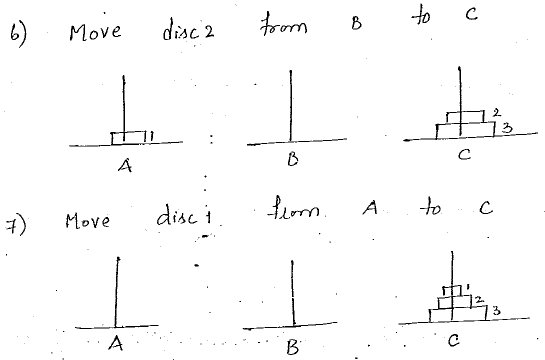 6) Move disc 2 from B to C
1 2
3
A B C
7) Move disc 1 from A to C
1
2
3
A B C